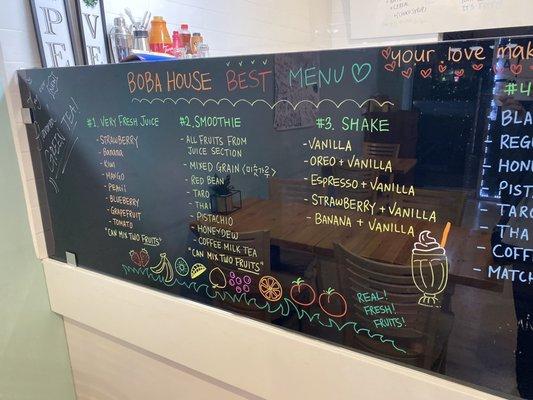 BOBA HOUSE BEST MENU
#1. VERY FRESH JUICE
- STRAWBERRY
- BANANA
- KIWI
- MANGO
- PEACH
- BLUEBERRY
- GRAPEFRUIT
- TOMATO
"CAN MIX TWO FRUITS"
#2. SMOOTHIE
- ALL FRUITS FROM
JUICE SECTION
- MIXED GRAIN (미숫가루)
- RED BEAN
- TARO
- THAI
- PISTACHIO
- HONEYDEW
- COFFEE MILK TEA
"CAN MIX TWO FRUITS"
#3. SHAKE
- VANILLA
- OREO + VANILLA
- ESPRESSO + VANILLA
- STRAWBERRY + VANILLA
- BANANA + VANILLA
REAL!
FRESH!
FRUITS!
your love
#4
- BLA
- REGU
- HONE
- PISTA
- TARO
- THA
- COF
- MATCH
GREEN TEA!